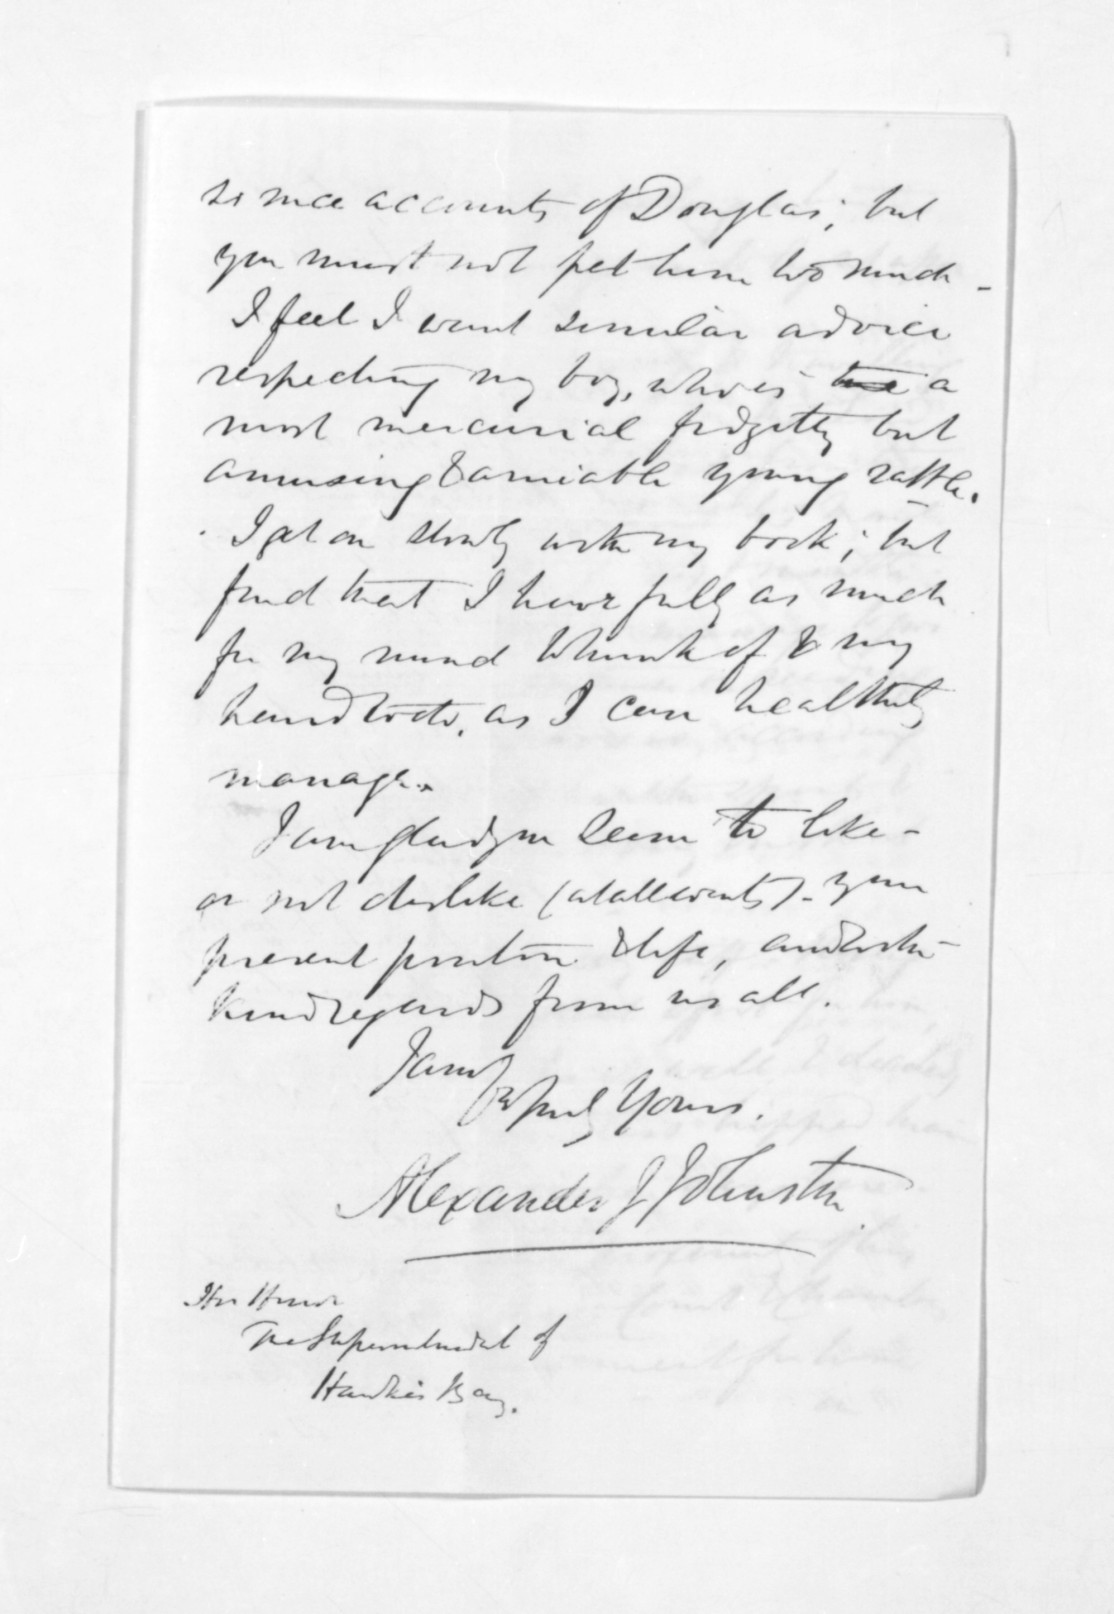 so nice accounts of Douglas; but
you must not pet him too much -
I feel I want similar advice
respecting my boy, who is a
most mercurial fidgetty but
amusing & amiable young rattle.
I get on slowly with my book; but
find that I have fully as much
for my mind to think of & my
hand to do, as I can healthily
manage.
I am glad you seem to like -
or not dislike (at all events) - your
present position & life, and with
kind regards from us all.
I am
Yours.
Alexander J Johnston
His Honor
The Superintendent of
Hawkes Bay.